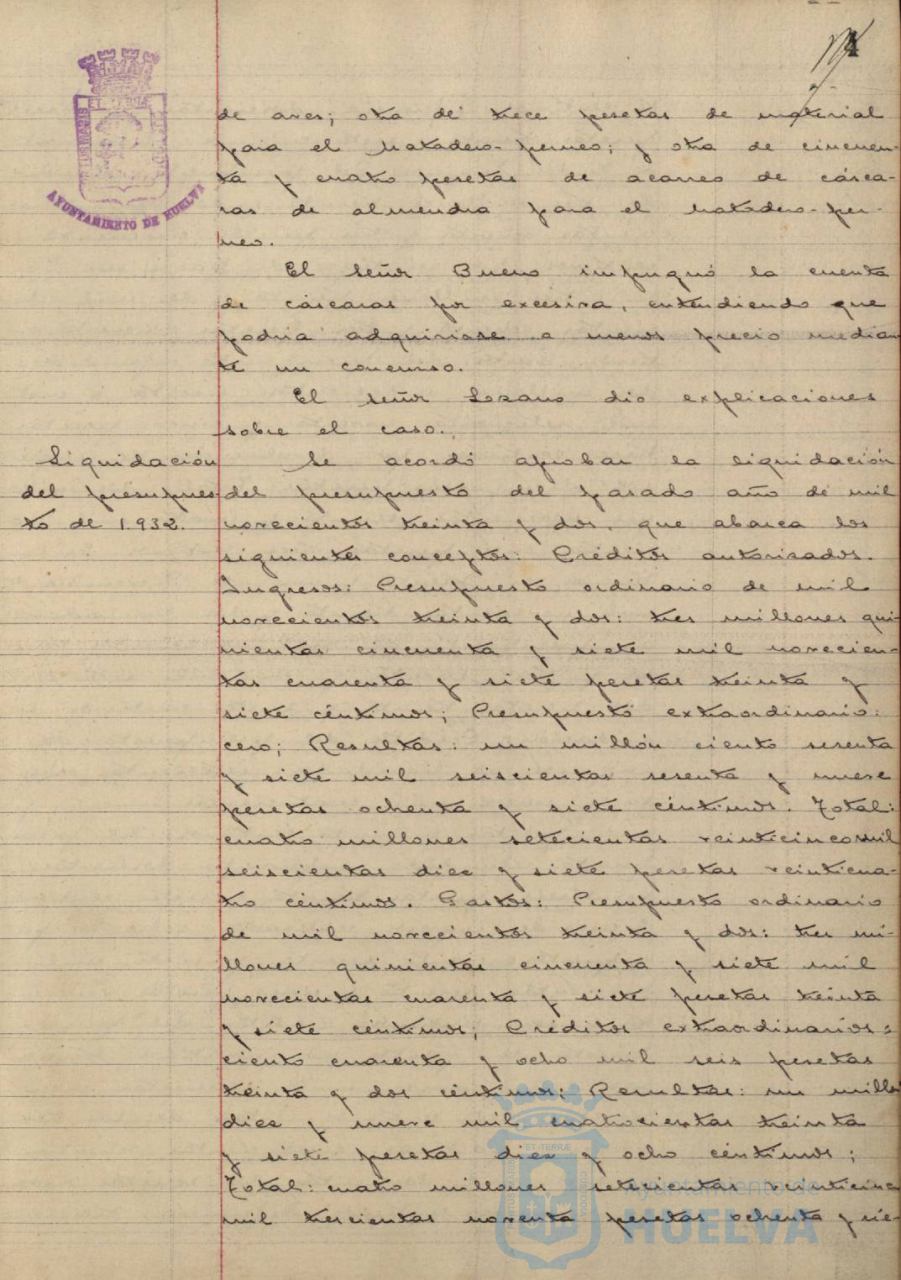 de aves; otra de trece pesetas de material
para el matadero-perneo; y otra de cincuen-
ta y cuatro pesetas de acarreo de cásca-
ras de almendra para el matadero-per-
neo.
El señor Bueno impugnó la cuenta
de cáscaras por excesiva, entendiendo que
podría adquirirse a menos precio median
te un concurso.
El señor Lozano dio explicaciones
sobre el caso.
Liquidación
del presupues-
to de 1.932.
Se acordó aprobar la liquidación
del presupuesto del pasado año de mil
novecientos treinta y dos, que abarca los
siguientes conceptos: Créditos autorizados.
Ingresos: Presupuesto ordinario de mil
novecientos treinta y dos: tres millones qui-
nientas cincuenta y siete mil novecien-
tas cuarenta y siete pesetas treinta y
siete céntimos; Presupuesto extraordinario:
cero; Resultas: un millón ciento sesenta
y siete mil seiscientas sesenta y nueve
pesetas ochenta y siete céntimos. Total:
cuatro millones setecientas veinticinco mil
seiscientas diez y siete pesetas veinticua-
tro céntimos. Gastos: Presupuesto ordinario
de mil novecientos treinta y dos: tres mi-
llones quinientas cincuenta y siete mil
novecientas cuarenta y siete pesetas treinta
y siete céntimos; Créditos extraordinarios:
ciento cuarenta y ocho mil seis pesetas
treinta y dos céntimos; Resultas: un millón
diez y nueve mil cuatrocientas treinta
y siete pesetas diez y ocho céntimos;
Total: cuatro millones setecientas veinticinco
mil trescientas noventa pesetas ochenta y sie-
AYUNTAMIENTO DE HUELVA
Ayuntamiento de
HUELVA